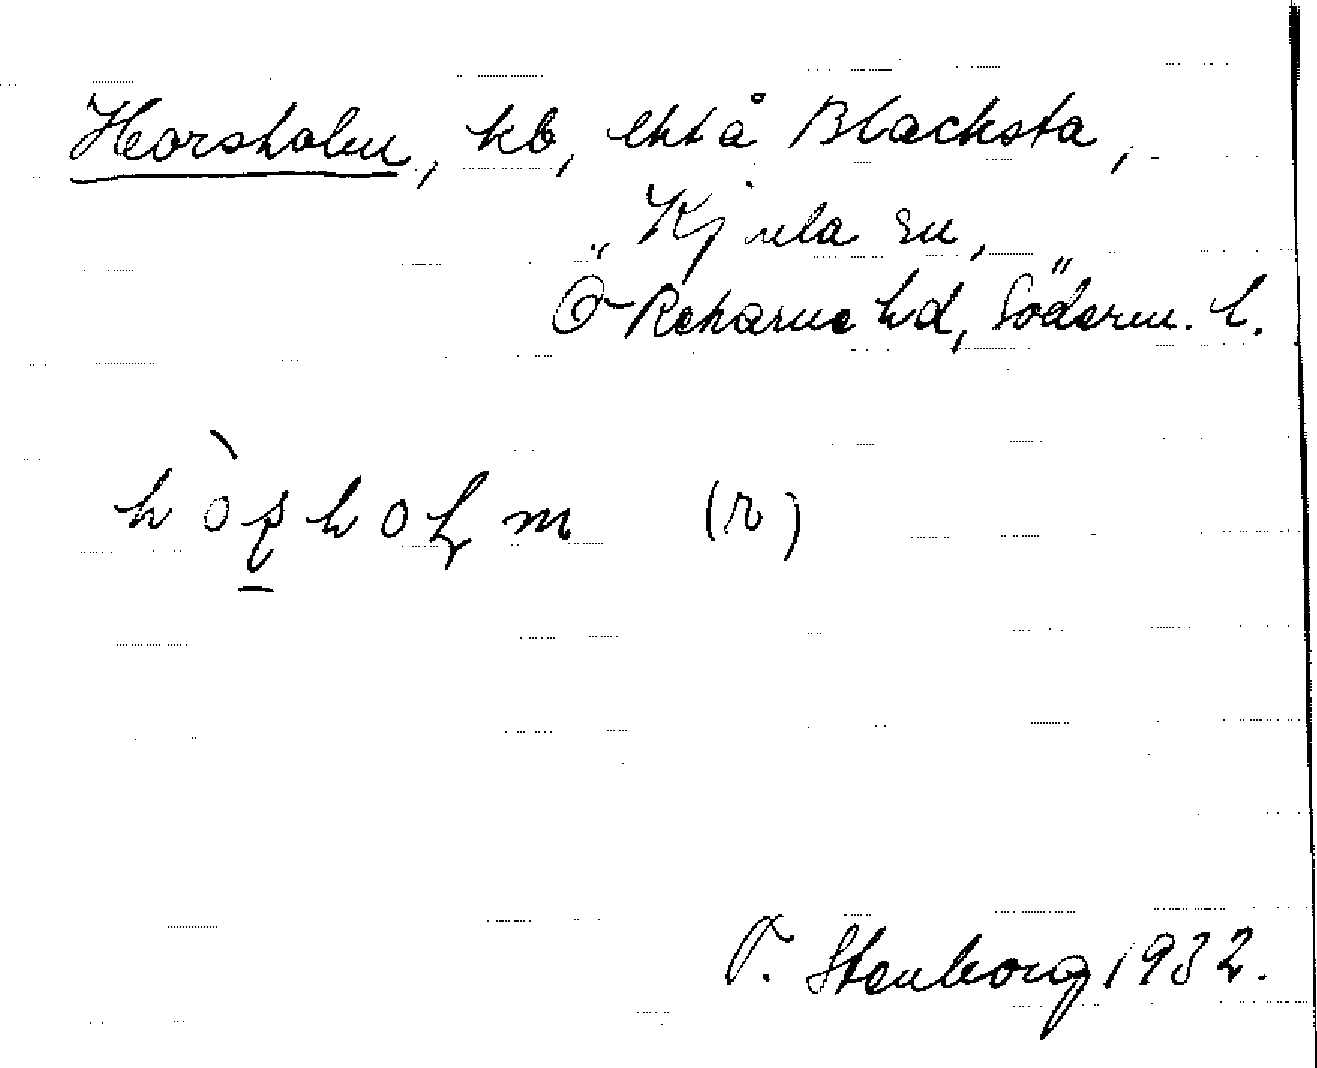 Horsholm, kb, ekt å Blacksta,
Kjula sn,
Ö Rekarne hd, Söderm. l.
(r)
Stenborg 1932.